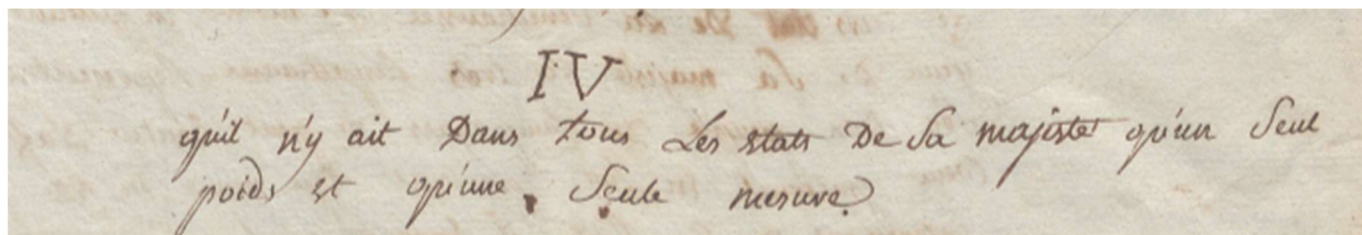 IV
qu'il n'y ait Dans tous Les etats De Sa majesté qu'un Seul
poids et qu'une Seule mesure.